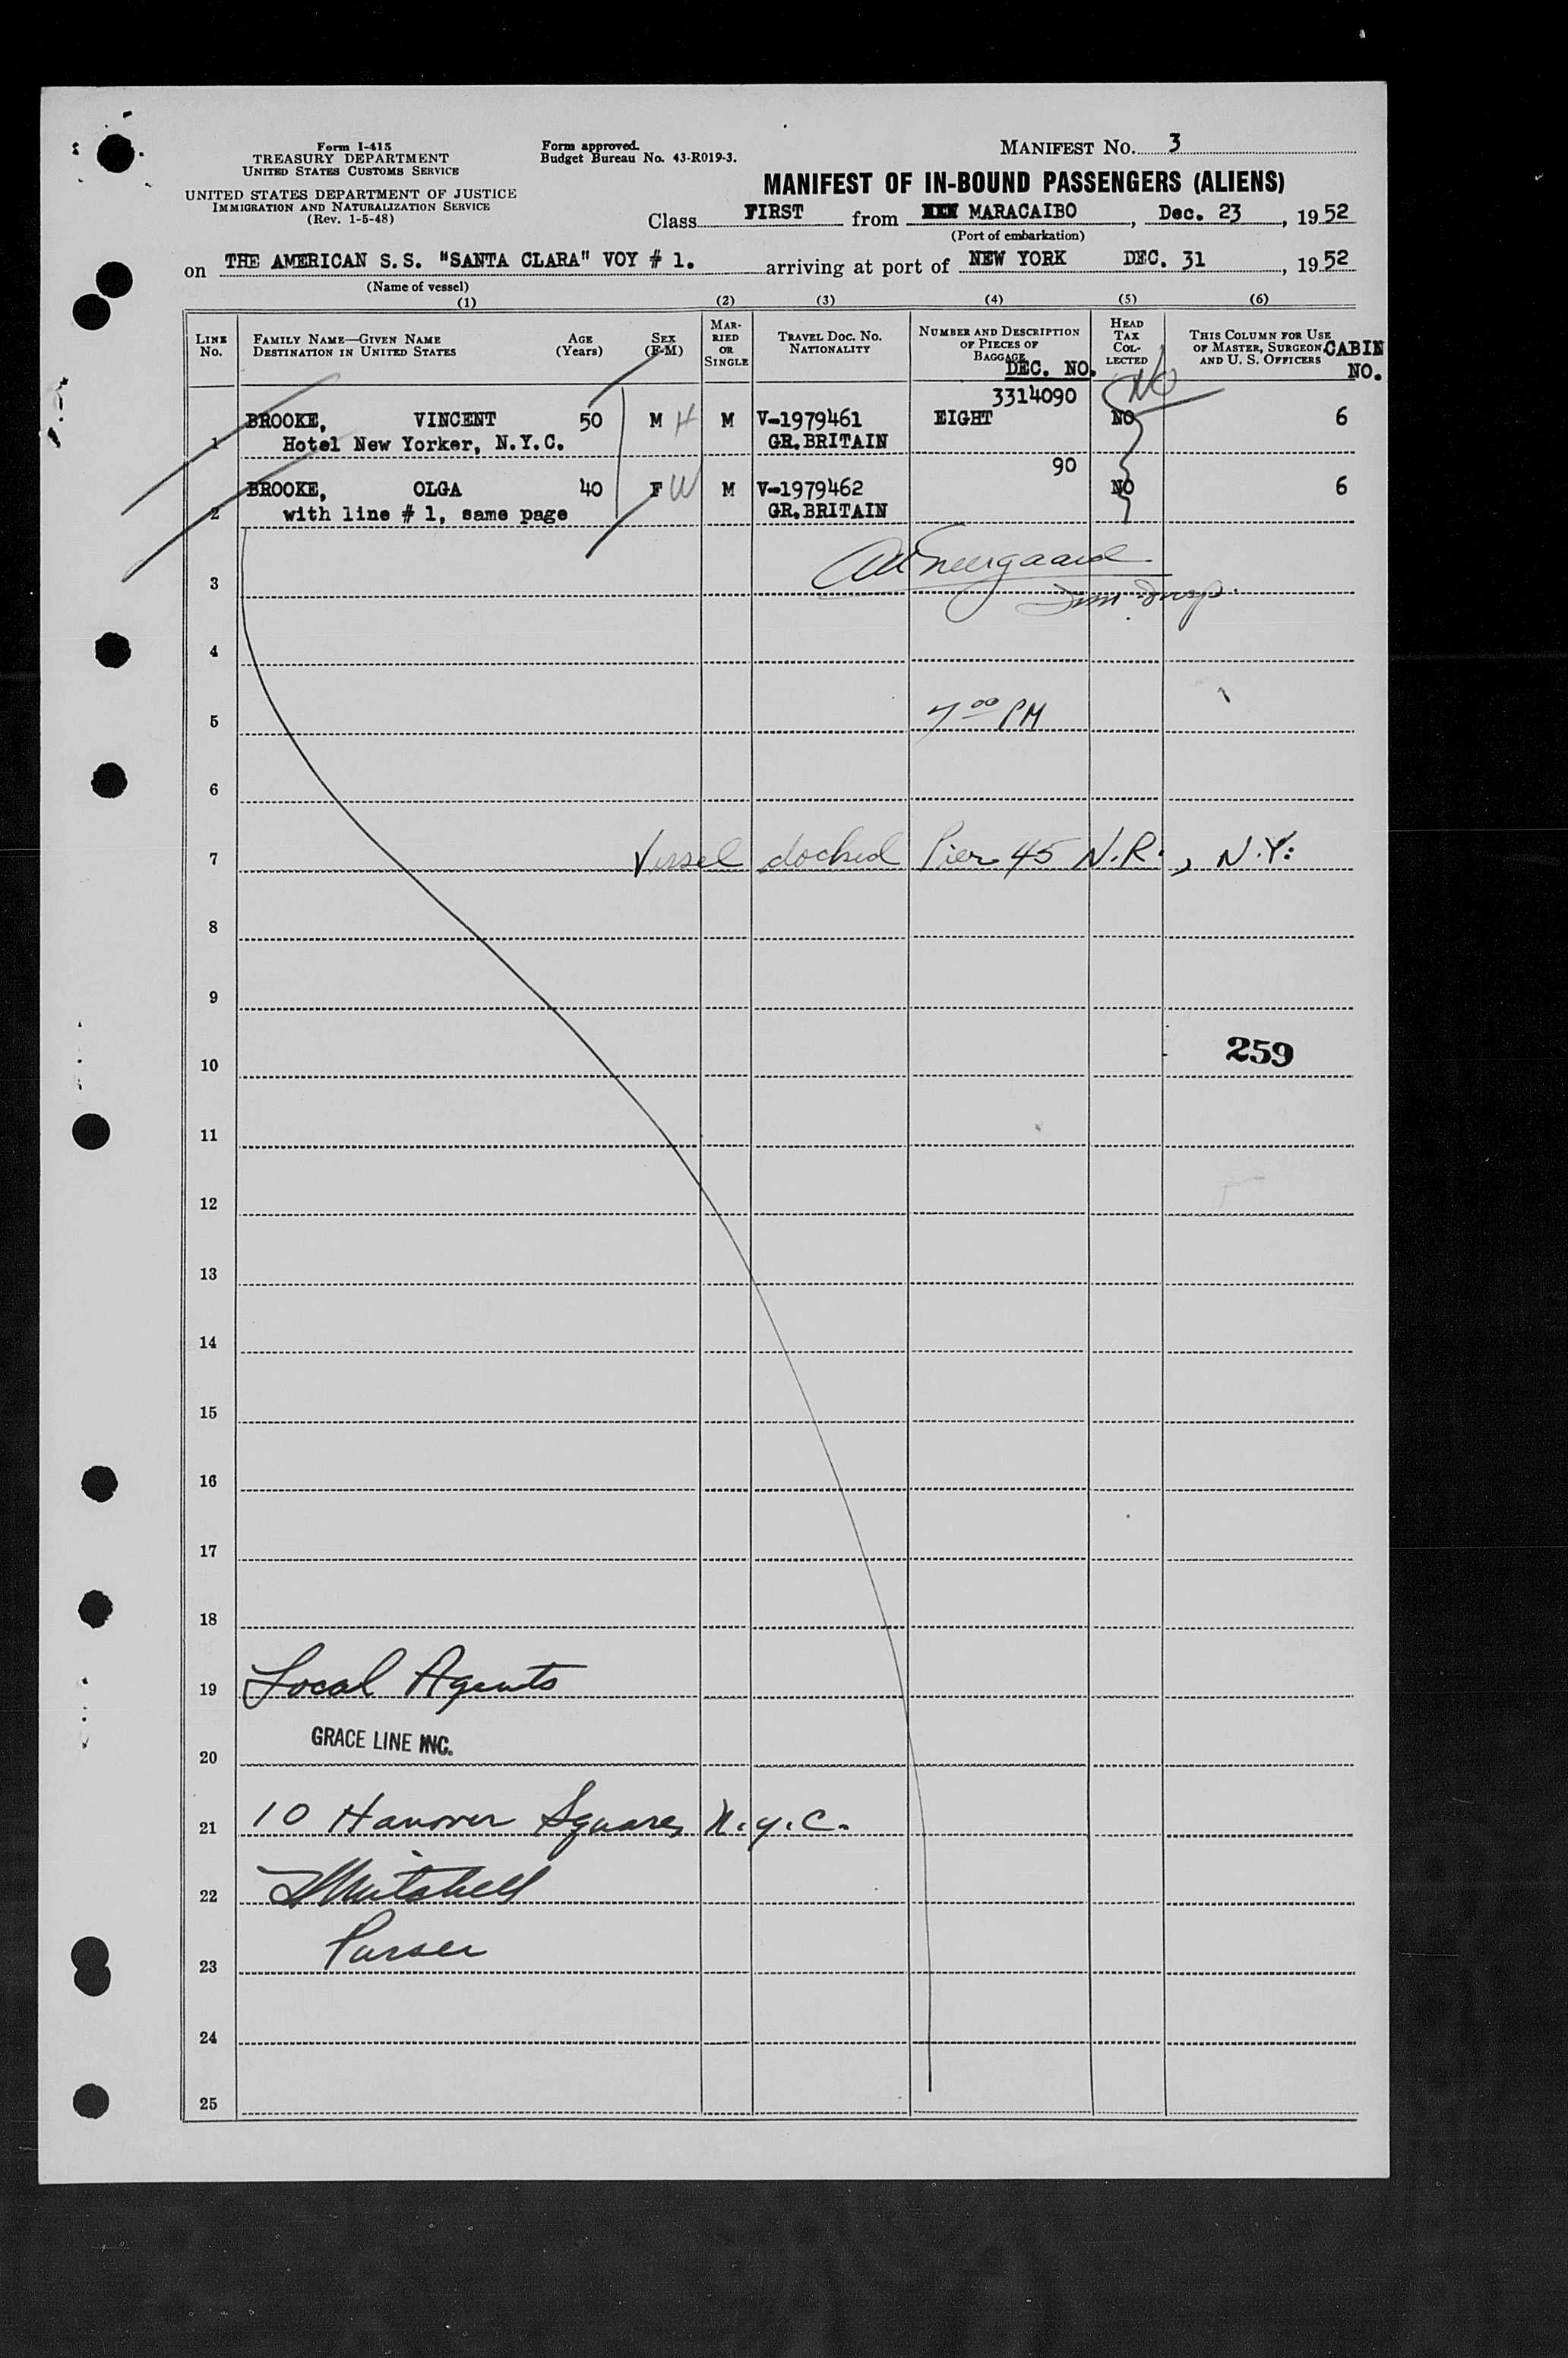 Form I-415
TREASURY DEPARTMENT
UNITED STATES CUSTOMS SERVICE
UNITED STATES DEPARTMENT OF JUSTICE
IMMIGRATION AND NATURALIZATION SERVICE
(Rev. 1-5-48)
Form approved.
Budget Bureau No. 43-R019-3.
MANIFEST No. 3
MANIFEST OF IN-BOUND PASSENGERS (ALIENS)
Class FIRST from MARACAIBO, Dec. 23, 1952
(Port of embarkation)
on THE AMERICAN S.S. "SANTA CLARA" VOY # 1. arriving at port of NEW YORK DEC. 31, 1952
(Name of vessel)
(1) (2) (3) (4) (5) (6)
LINE No.
FAMILY NAME—GIVEN NAME
DESTINATION IN UNITED STATES
AGE (Years)
SEX (F-M)
MARRIED OR SINGLE
TRAVEL DOC. NO.
NATIONALITY
NUMBER AND DESCRIPTION OF PIECES OF BAGGAGE
DEC. NO.
HEAD TAX COLLECTED
THIS COLUMN FOR USE OF MASTER, SURGEON, AND U. S. OFFICERS
CABIN NO.
3314090 No
1 BROOKE, VINCENT 50 M H M V-1979461 EIGHT NO 6
Hotel New Yorker, N.Y.C. GR.BRITAIN
90
2 BROOKE, OLGA 40 F W M V-1979462 NO 6
with line # 1, same page GR.BRITAIN
3
4
5 7 00 PM
6
7 Vessel docked Pier 45 N.R., N.Y.
8
9
10 259
11
12
13
14
15
16
17
18
19 Local Agents
20 GRACE LINE INC.
21 10 Hanover Square, N.Y.C.
22 Mitchell
23 Purser
24
25